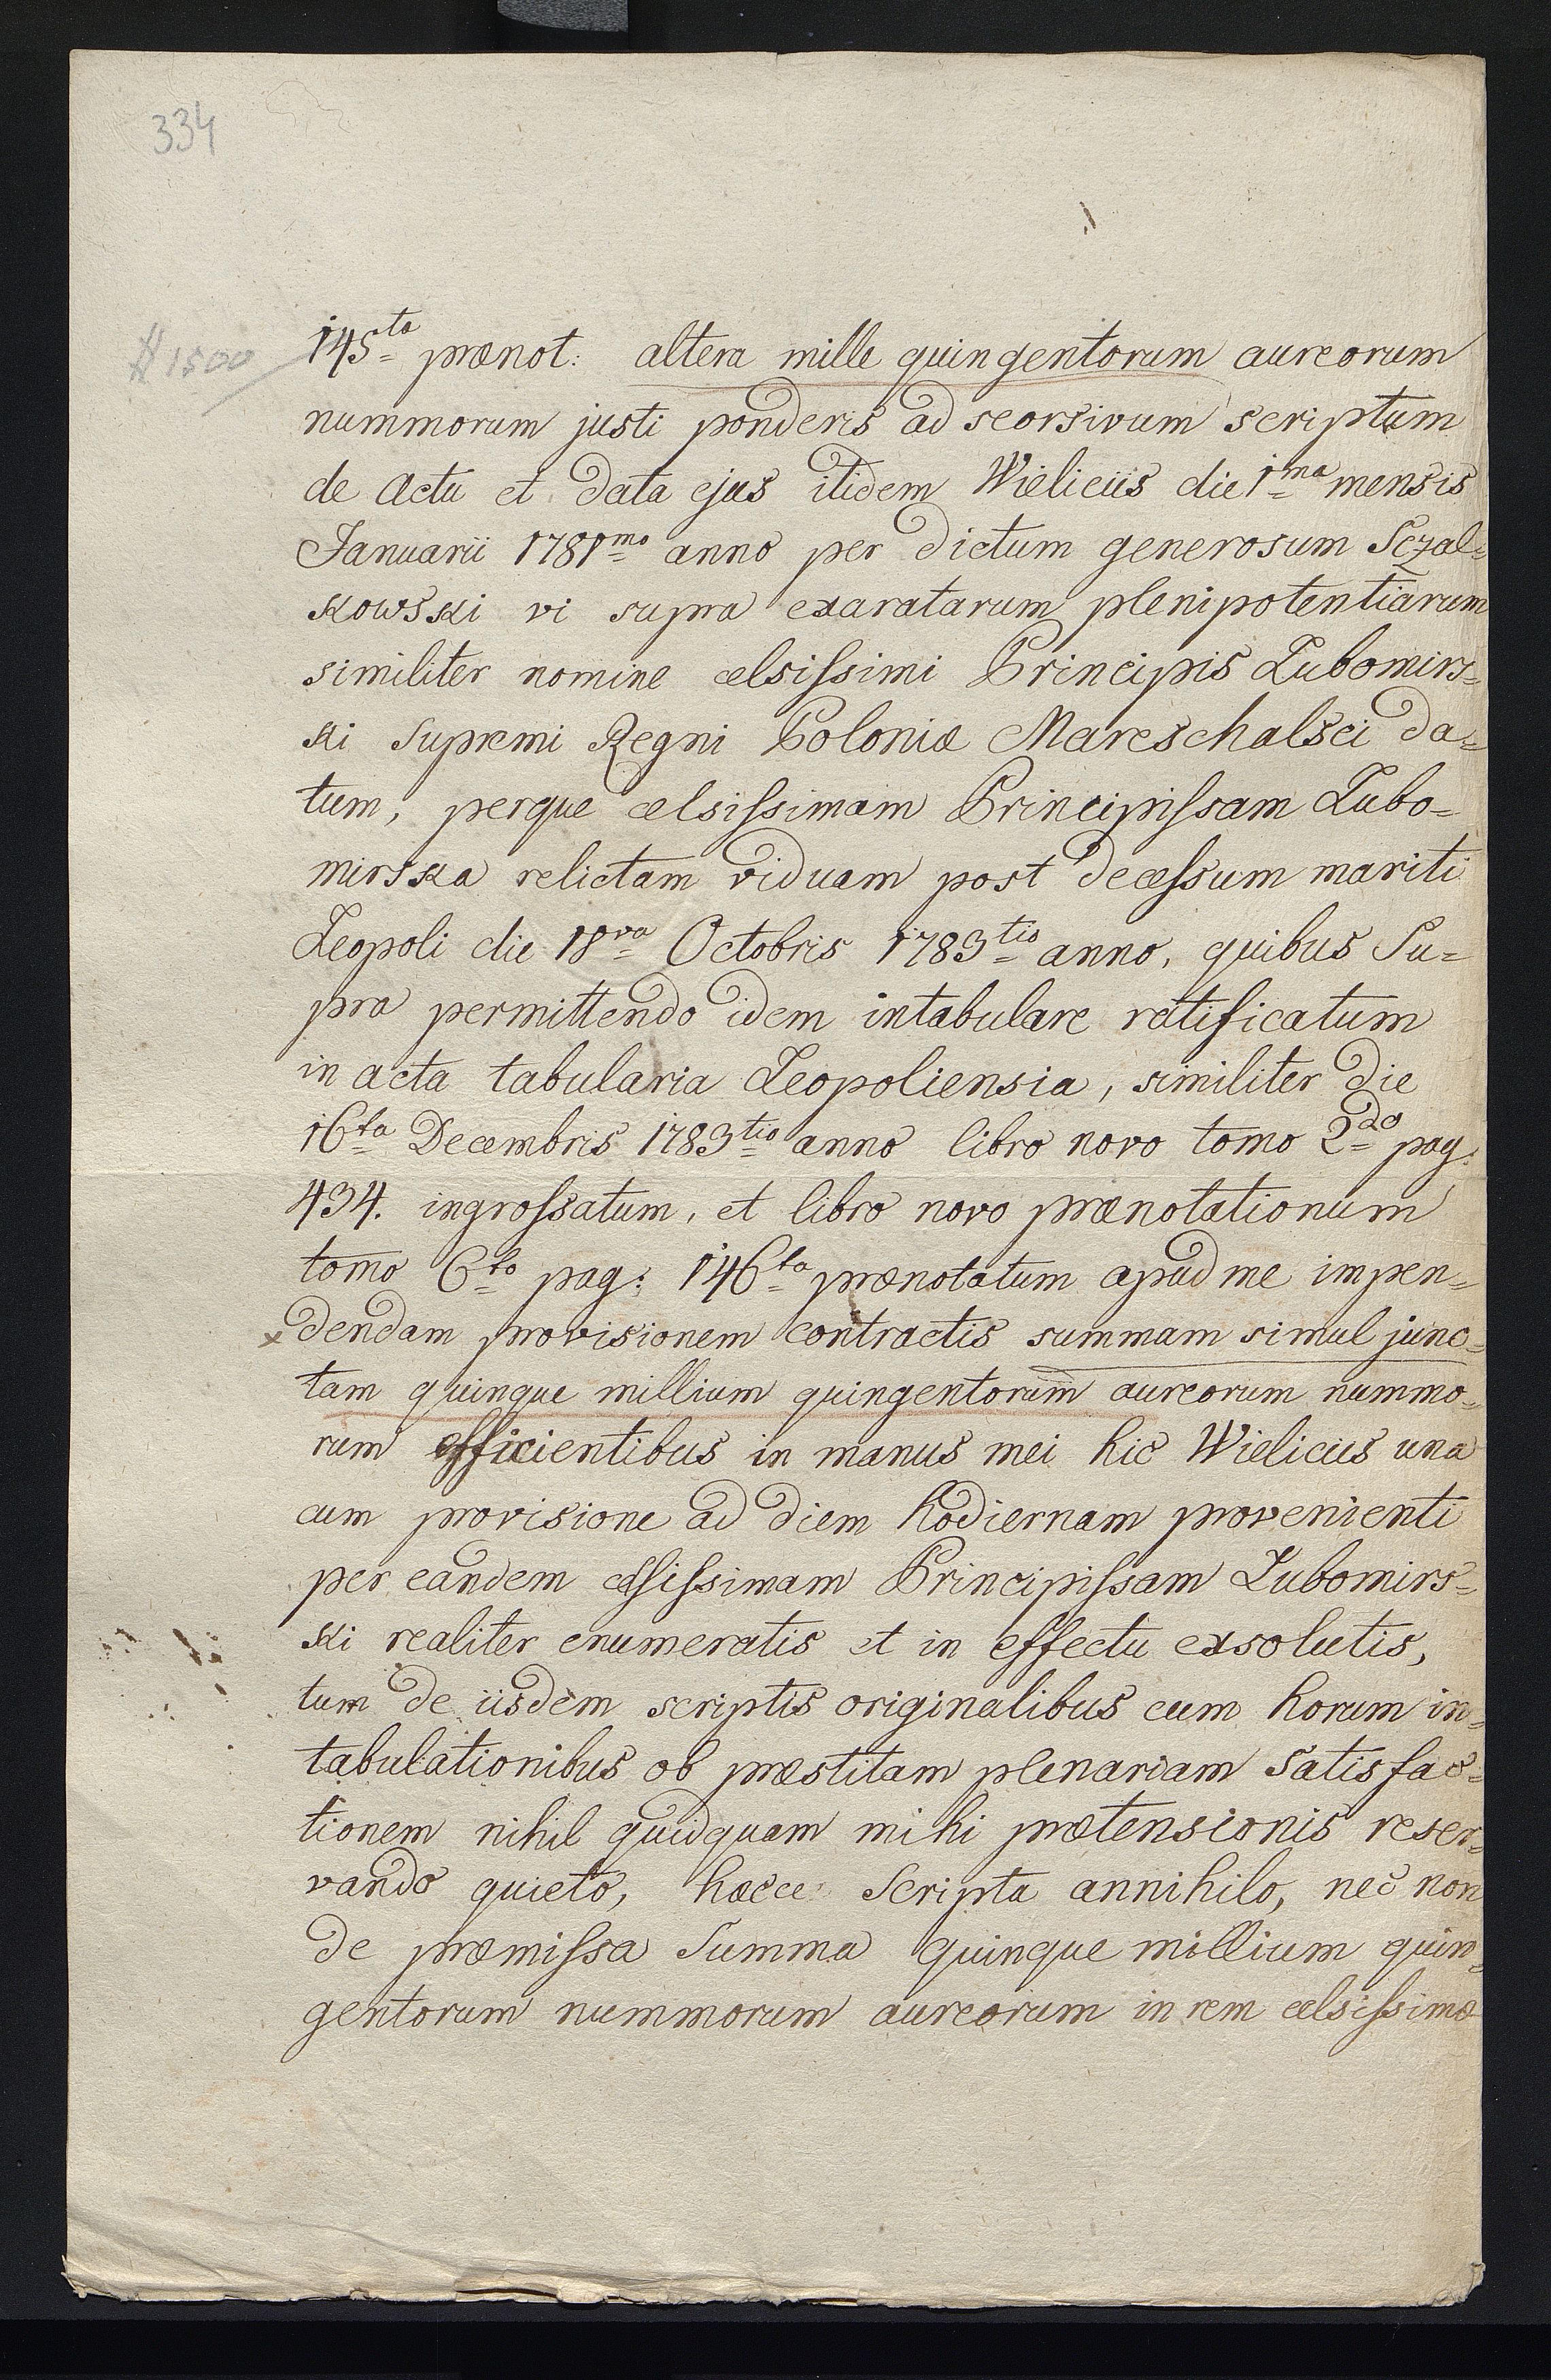 334
# 1500
145ta prænot: altera mille quingentorum aureorum
nummorum justi ponderis ad seorsivum scriptum
de Actu et data ejus itidem Wieliciis die 1ma mensis
Januarii 1781mo anno per dictum generosum Sczal=
kowski vi supra exaratarum plenipotentiarum
similiter nomine celsissimi Principis Lubomirs=
ki Supremi Regni Poloniæ Mareschalsci da=
tum, perque celsissimam Principissam Lubo=
mirska relictam viduam post decessum mariti
Leopoli die 18va Octobris 1783tio anno, quibus Su=
pra permittendo idem intabulare ratificatum
in acta tabularia Leopoliensia, similiter die
16ta Decembris 1783tio anno libro novo tomo 2do pag:
434. ingrossatum, et libro novo prænotationum
tomo 6to pag: 146ta prænotatum apud me impen=
x dendam provisionem contractis summam simul junc=
tam quinque millium quingentorum aureorum nummo=
rum efficientibus in manus mei hic Wieliciis una
cum provisione ad diem hodiernam provenienti
per eandem celsissimam Principissam Lubomirs=
ki realiter enumeratis et in effectu exsolutis,
tum de iisdem scriptis originalibus cum horum in=
tabulationibus ob præstitam plenariam Satisfac=
tionem nihil quidquam mihi prætensionis reser=
vando quieto, hæcce Scripta annihilo, nec non
de præmissa Summa quinque millium quin=
gentorum nummorum aureorum in rem celsissimæ